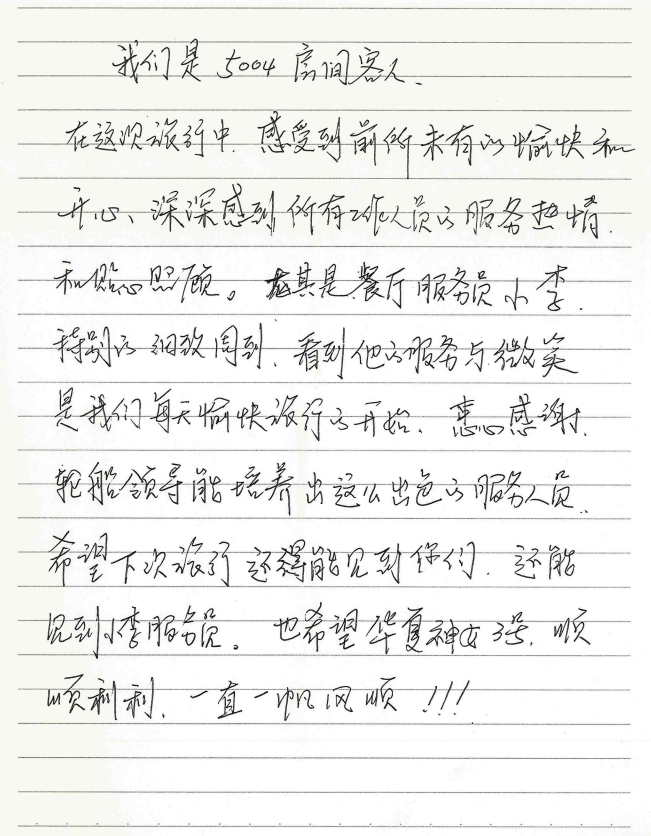 我们是5004房间客人.
在这次旅行中.感受到前所未有的愉快和
开心、深深感到所有工作人员的服务热情.
和贴心照顾。尤其是餐厅服务员小李.
特别的细致周到.看到他的服务与微笑
是我们每天愉快旅行的开始.衷心感谢.
轮船领导能培养出这么出色的服务人员.
希望下次旅行还得能见到你们.还能
见到小李服务员。也希望华夏神女3号.顺
顺利利.一直一帆风顺!!!